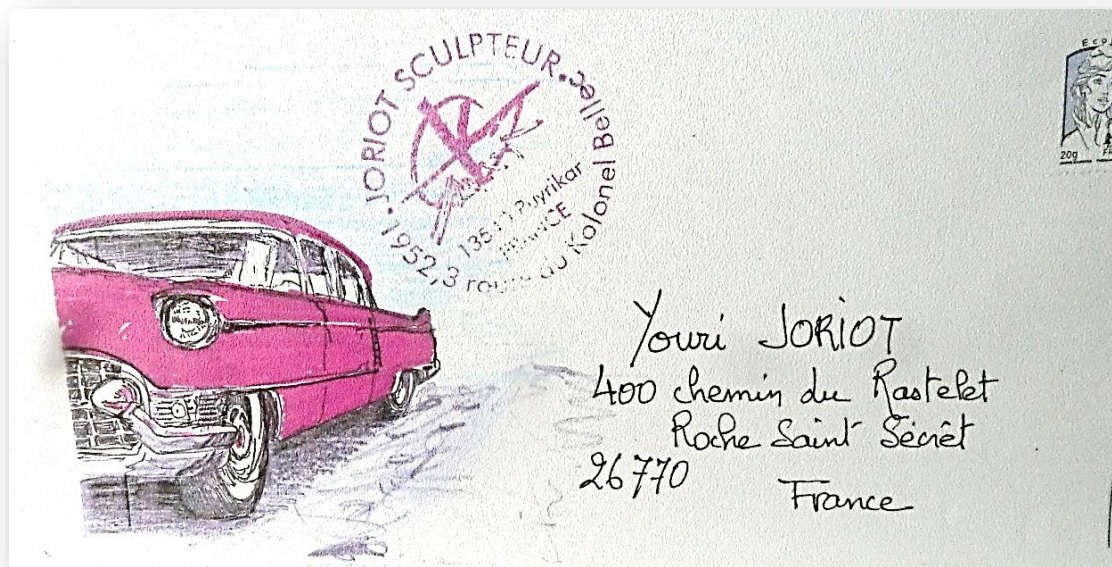 JORIOT SCULPTEUR.
1952, 3 route du Kolonel Bellec
Puyrikar
FRANCE
20g
Youri JORIOT
400 chemin du Rastelet
Roche Saint Sécrèt
26770
France